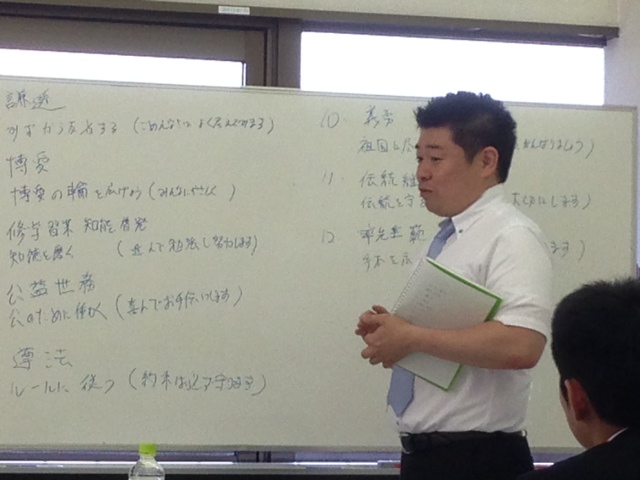 謙遜
みずから反省する (ごめんなさい よく考えてみます)
博愛
博愛の輪を広げよう (みんなにやさしく)
修学習業 知能啓発
知能を磨く (進んで勉強し努力します)
公益世務
公のために働く (喜んでお手伝いします)
遵法
ルールに従う (約束は必ず守ります)
10. 義勇
祖国に尽
11. 伝統
伝統を守
12. 率先垂範
手本を示